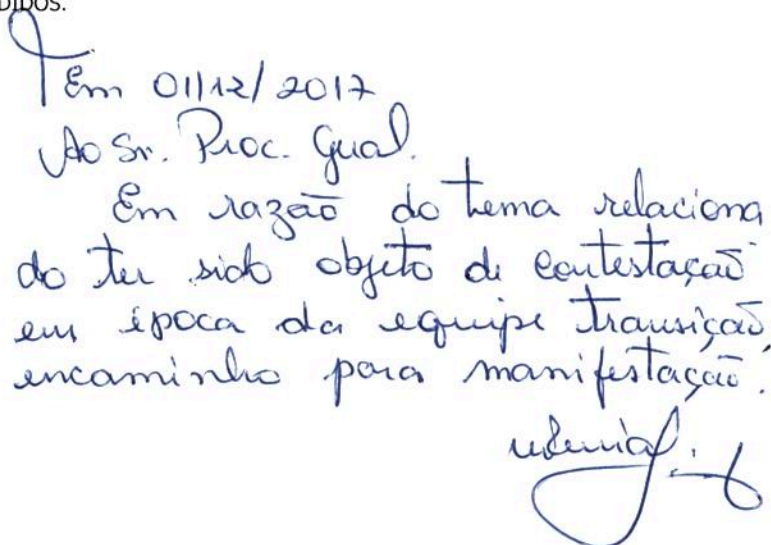 DIDOS.
Em 01/12/2017
Ao Sr. Proc. Geral.
Em razão do tema relaciona
do ter sido objeto de contestação
em época da equipe transição,
encaminho para manifestação.